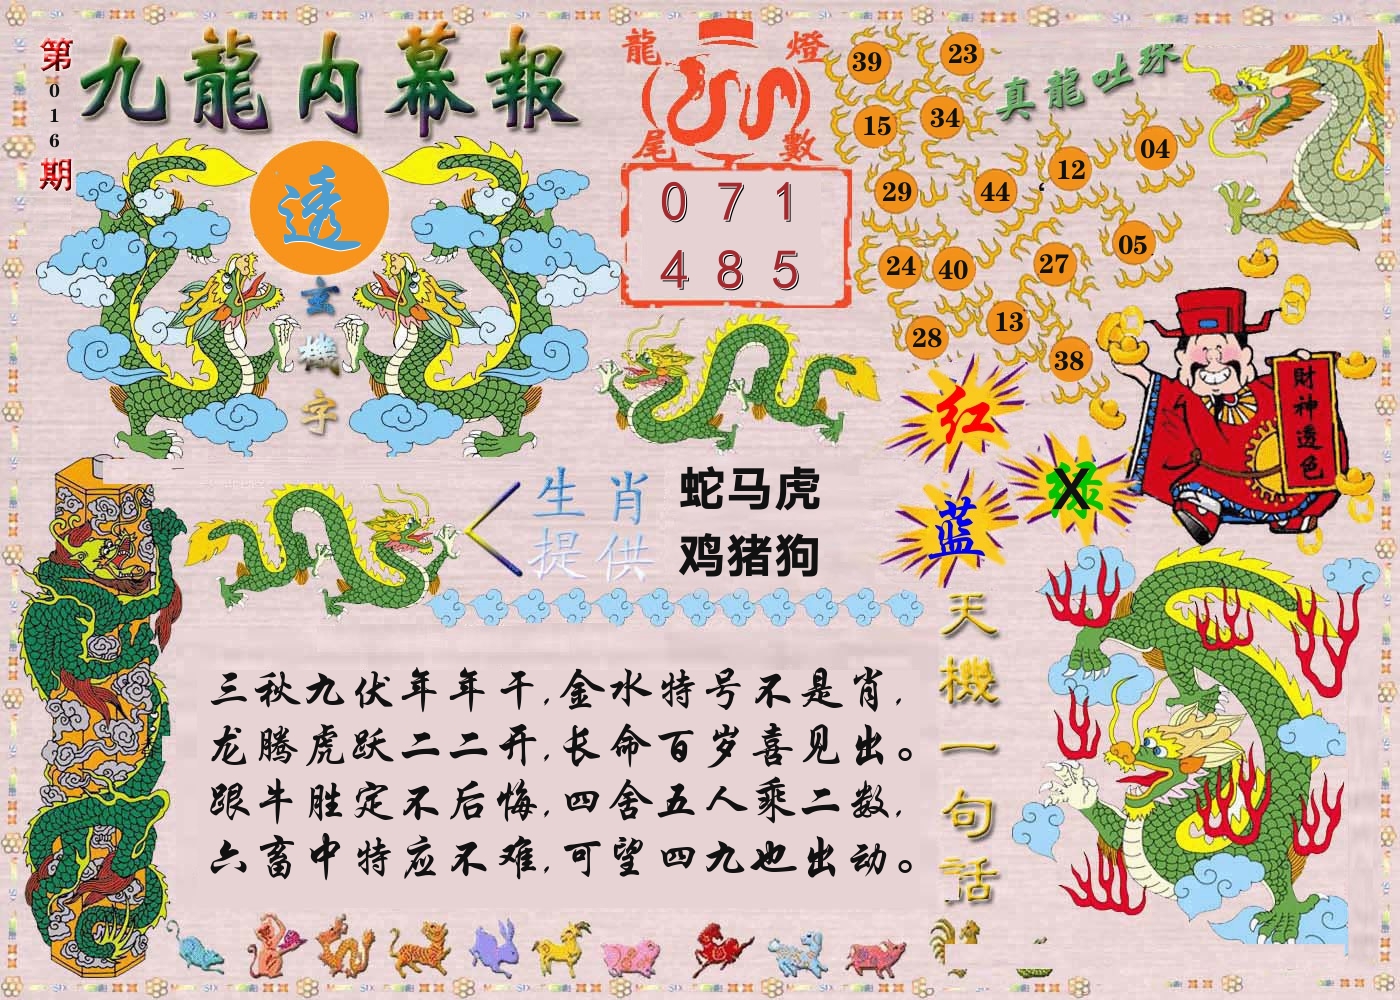 第016期
九龍内幕報
透
玄機字
龍燈尾數
0 7 1
4 8 5
真龍吐珠
39 23
15 34
12 04
29 44
24 40 27 05
28 13 38
財神透色
红
绿
蓝
生肖提供
蛇马虎
鸡猪狗
三秋九伏年年干,金水特号不是肖,
龙腾虎跃二二开,长命百岁喜见出。
跟牛胜定不后悔,四舍五人乘二数,
六畜中特应不难,可望四九也出动。
天機一句話